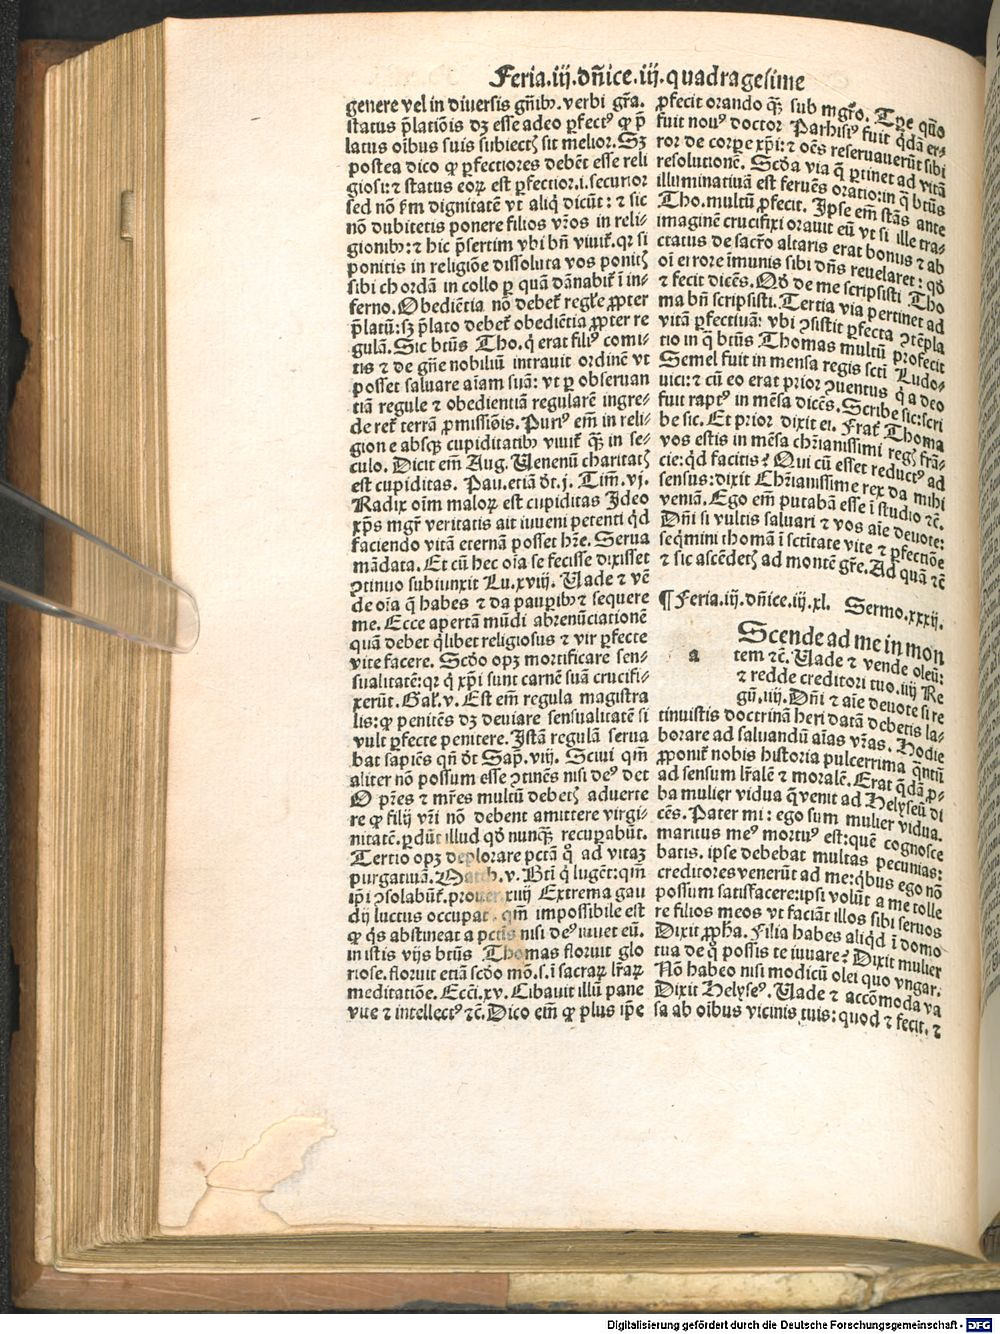 Feria.iij.dn̄ice.iij.quadragesime
genere vel in diuersis gn̄ibꝰ. verbi gr̄a.
status p̄latiōis dꝫ esse adeo ꝑfectꝰ ꝙ p̄
latus oībus suis subiectꝭ sit melior. Sꝫ
postea dico ꝙ ꝑfectiores debēt esse reli
giosi: ⁊ status eoꝝ est ꝑfectior.i.securior
sed nō ẜm dignitatē vt aliq̄ dicūt: ⁊ sic
nō dubitetis ponere filios vr̄os in reli-
gionibꝰ: ⁊ hic p̄sertim vbi bn̄ viuit̄. qr si
ponitis in religiōe dissoluta vos ponitꝭ
sibi chordā in collo ꝑ quā dānabit̄ ī in-
ferno. Obediētia nō debet̄ regl̄e ꝓpter
p̄latū: sꝫ p̄lato debet̄ obediētia ꝓpter re
gulā. Sic btūs Tho. q̇ erat filiꝰ comi-
tis ⁊ de gn̄e nobiliū intrauit ordinē vt
posset saluare aīam suā: vt ꝑ obseruan
tiā regule ⁊ obedientiā regularē ingre-
deret̄ terrā ꝓmissiōis. Puriꝰ em̄ in reli-
gione absqꝫ cupiditatibꝰ viuit̄ qꝫ̄ in se-
culo. Dicit em̄ Aug. Uenenū charitatꝭ
est cupiditas. Pau. etiā dt̄.j. Tim̄. vj.
Radix oīm maloꝝ est cupiditas Ideo
xp̄s mgr̄ veritatis ait iuueni petenti qͥd
faciendo vitā eternā posset hr̄e. Serua
mādata. Et cū hec oīa se fecisse dixisset
ꝯtinuo subiunxit Lu.xviij. Uade ⁊ vē
de oīa q̄ habes ⁊ da pauꝑibꝰ ⁊ sequere
me. Ecce apertā mūdi abrenūciationē
quā debet qͥlibet religiosus ⁊ vir ꝑfecte
vite facere. Scdō opꝫ mortificare sen-
sualitatē: qr q̇ xp̄i sunt carnē suā crucifi-
xerūt. Gal̄. v. Est em̄ regula magistra
lis: ꝙ penitēs dꝫ deuiare sensualitatē si
vult ꝑfecte penitere. Istā regulā serua
bat sapiēs qn̄ dt̄ Sap̄. viij. Sciui qm̄
aliter nō possum esse ꝯtinēs nisi deꝰ det
O pr̄es ⁊ mr̄es multū debetꝭ aduerte
re ꝙ filij vr̄i nō debent amittere virgi-
nitatē. ꝑdūt illud qd̄ nunqꝫ̄ recuꝑabūt.
Tertio opꝫ deplorare pctā qͦ ad vitaꝫ
purgatiuā. Math. v. Bti q̇ lugēt: qm̄
ip̄i ꝯsolabūt̄. prouer. xiiij Extrema gau
dij luctus occupat. qm̄ impossibile est
ꝙ qͥs abstineat a pctīs nisi deꝰ iuuet eū.
in istis vijs btūs Thomas floruit glo
riose. floruit etiā scdō mō. s. ī sacraꝝ lr̄aꝝ
meditatiōe. Ecci. xv. Cibauit illū pane
vite ⁊ intellectꝰ ⁊c̄. Dico em̄ ꝙ plus ip̄e
ꝓfecit orando qꝫ̄ sub mgr̄o. Tp̄e quo
fuit nouꝰ doctor Parhisiꝰ fuit qͥdā er-
ror de corꝑe xp̄i: ⁊ oēs reseruauerūt sibi
resolutionē. Scdā via q̄ ꝑtinet ad vitā
illuminatiuā est feruēs oratio: in q̄ btūs
Tho. multū ꝓfecit. Ipse em̄ stās ante
imaginē crucifixi orauit eū vt si ille tra-
ctatus de sacr̄o altaris erat bonus ⁊ ab
oī errore īmunis sibi dn̄s reuelaret: qd̄
⁊ fecit dicēs. Qd̄ de me scripsisti Tho
ma bn̄ scripsisti. Tertia via pertinet ad
vitā ꝑfectiuā: vbi ꝯsistit ꝑfecta ꝯtēpla
tio in q̄ btūs Thomas multū profecit
Semel fuit in mensa regis scti Ludo-
uici: ⁊ cū eo erat prior ꝯuentus q̇ adeo
fuit raptꝰ in mēsa dicēs. Scribe sic: scri
be sic. Et prior dixit ei. Frat̄ Thoma
vos estis in mēsa chr̄ianissimi regꝭ frā-
cie: qͥd facitis? Qui cū esset reductꝰ ad
sensus: dixit Chr̄ianissime rex da mihi
veniā. Ego em̄ putabā esse ī studio ⁊c̄.
Dn̄i si vultis saluari ⁊ vos aīe deuote:
seqͥmini thomā ī sctītate vite ⁊ ꝑfectiōe
⁊ sic ascēdetꝭ ad montē gr̄e. Ad quā ⁊c̄
¶ Feria.iij.dn̄ice.iij.xl. Sermo.xxxij.
a
Scende ad me in mon
tem ⁊c̄. Uade ⁊ vende oleū:
⁊ redde creditori tuo. iiij Re
gū. iiij. Dn̄i ⁊ aīe deuote si re
tinuistis doctrinā heri datā debetis la-
borare ad saluandū aīas vr̄as. Hodie
ꝓponit̄ nobis historia pulcerrima qͣntū
ad sensum lr̄alē ⁊ moralē. Erat qͥdā ꝓ-
ba mulier vidua q̄ venit ad Helyseū di
cēs. Pater mi: ego sum mulier vidua.
maritus meꝰ mortuꝰ est: quē cognosce
batis. ipse debebat multas pecunias:
creditores venerūt ad me: qͥbus ego nō
possum satisfacere: ipsi volūt a me tolle
re filios meos vt faciāt illos sibi seruos
Dixit ꝓph̄a. Filia habes aliqͥd ī domo
tua de q̇ possis te iuuare? Dixit mulier
Nō habeo nisi modicū olei quo vngar.
Dixit Helyseꝰ. Uade ⁊ accōmoda va
sa ab oībus vicinis tuis: quod ⁊ fecit. ⁊
Digitalisierung gefördert durch die Deutsche Forschungsgemeinschaft - DFG